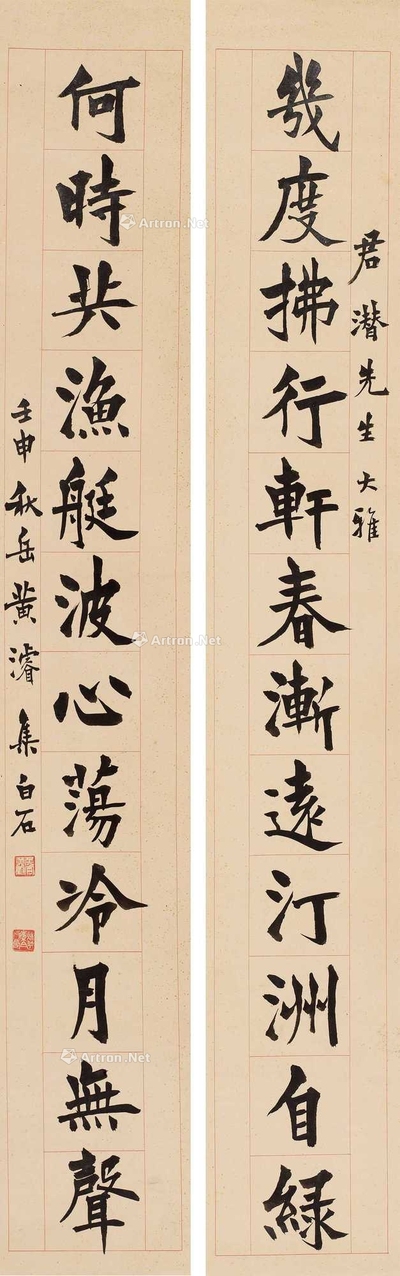 君潛先生大雅
幾度拂行軒春漸遠汀洲自綠
何時共漁艇波心蕩冷月無聲
壬申秋岳黃濬集白石
Artron.Net
Artron.Net
Artron.Net